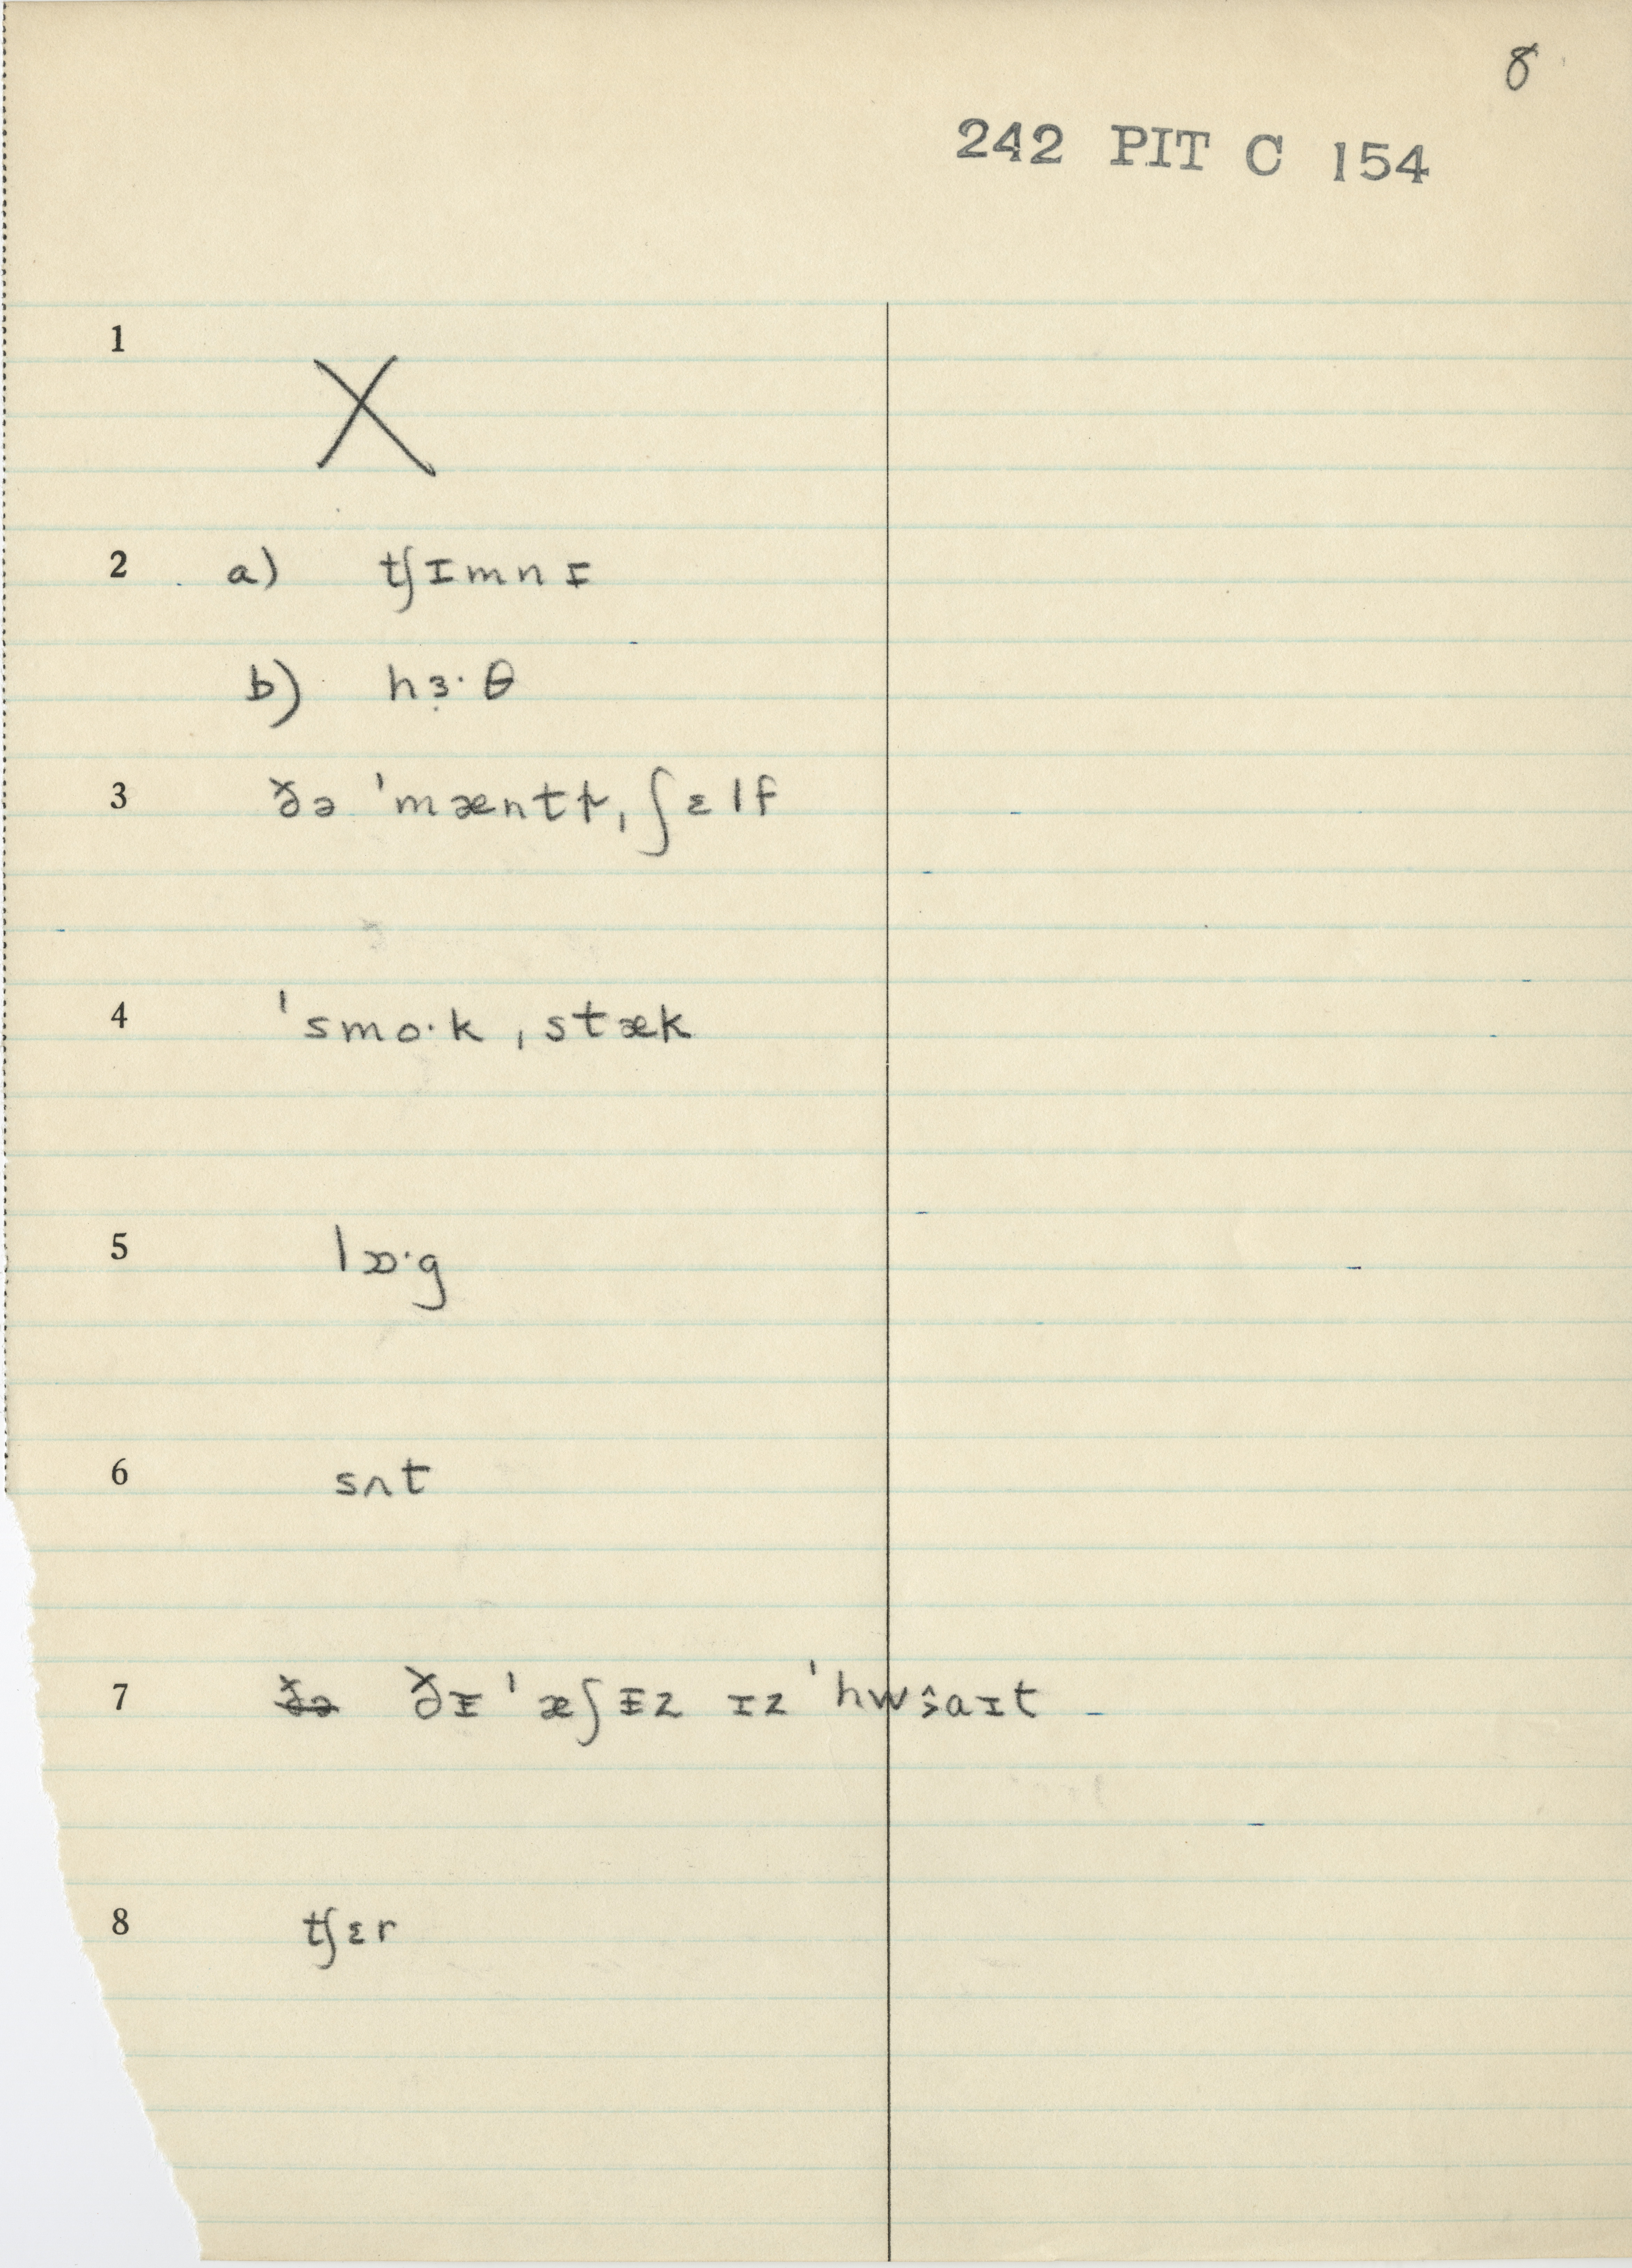 8
242 PIT C 154
1 X
2 a) tʃɪmnɪ
b) hɜ̣·θ
3 ðə ˈmæntɫ̩ˌʃɛlf
4 ˈsmo·kˌstæk
5 lɒ·g
6 sʌt
7 ðə ðɪ ˈæʃɪz ɪz ˈhwaɪt
8 tʃɛr